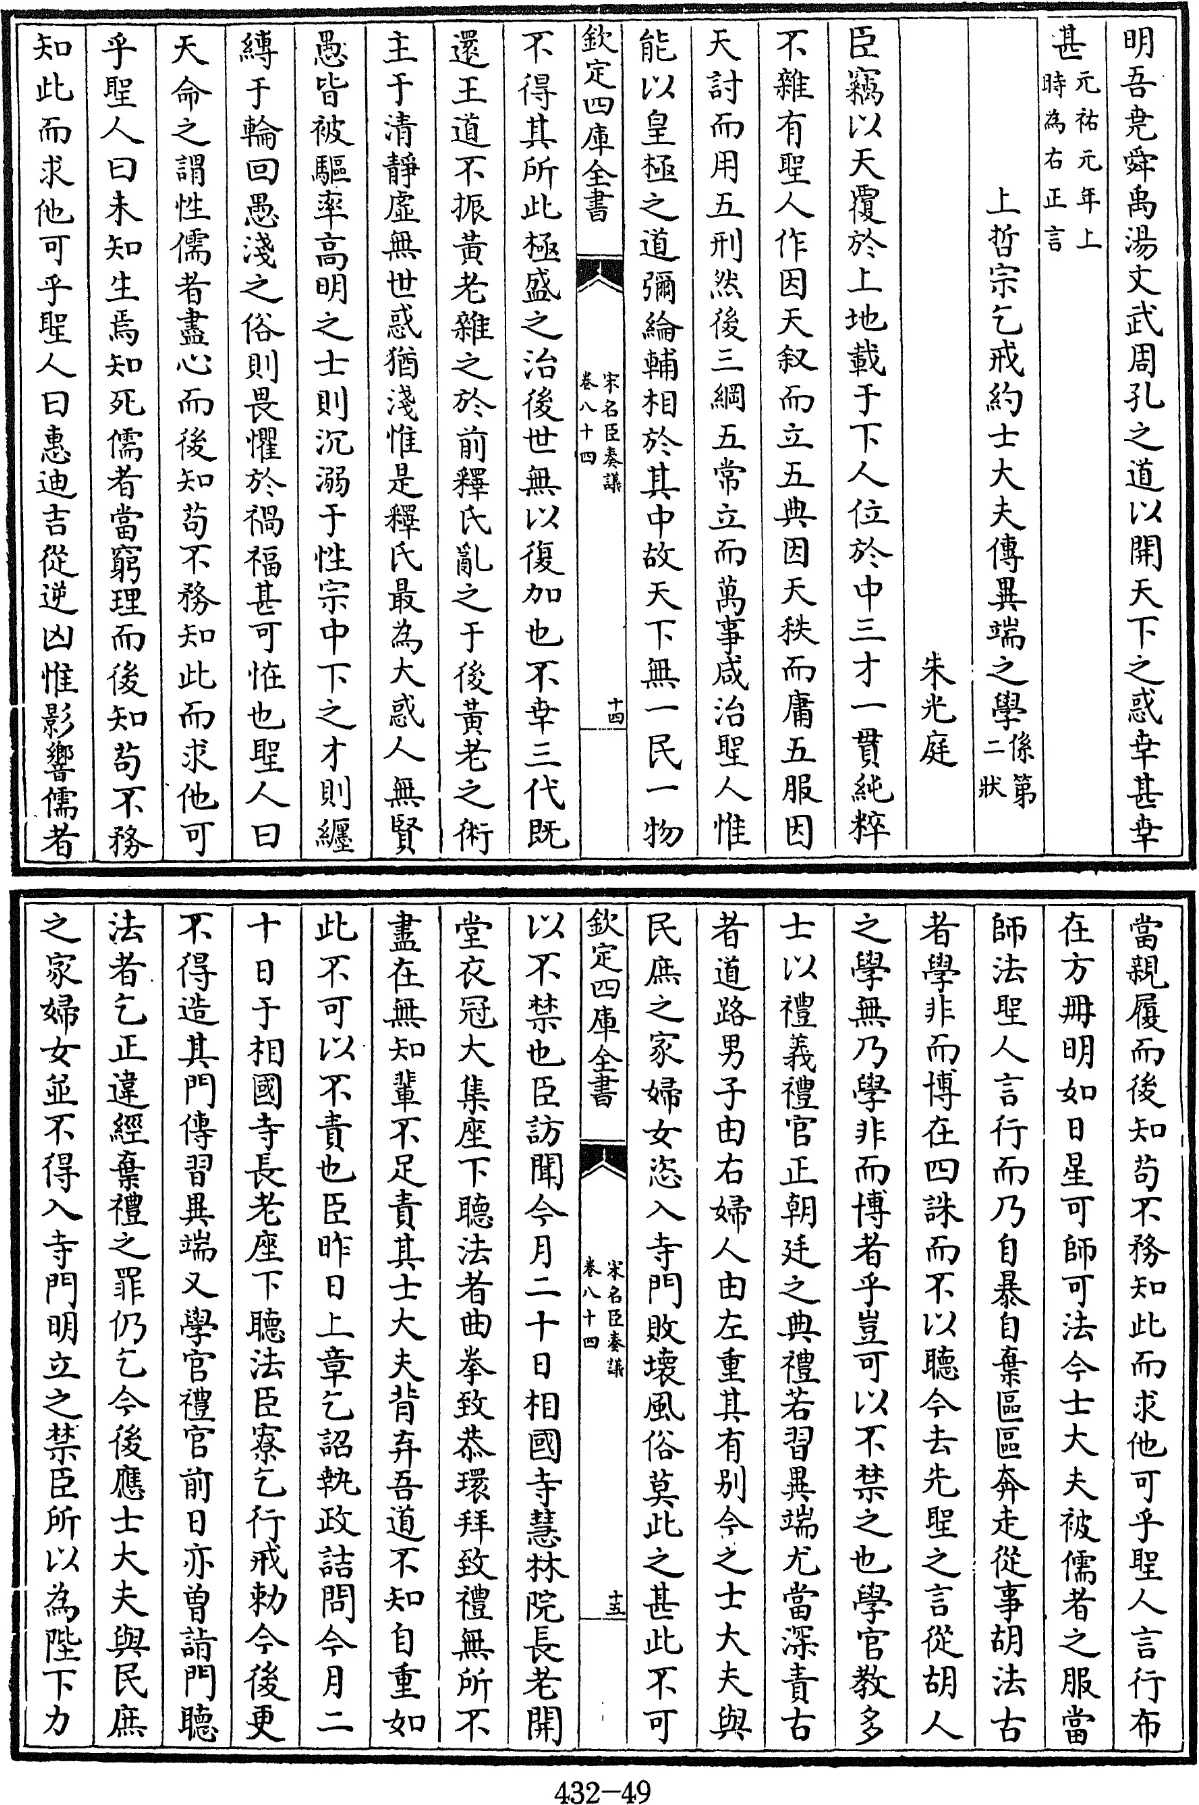 明吾堯舜禹湯文武周孔之道以開天下之惑幸甚幸
甚元祐元年上
時為右正言
上哲宗乞戒約士大夫傳異端之學係第
二狀
朱光庭
臣竊以天覆於上地載于下人位於中三才一貫純粹
不雜有聖人作因天叙而立五典因天秩而庸五服因
天討而用五刑然後三綱五常立而萬事咸治聖人惟
能以皇極之道彌綸輔相於其中故天下無一民一物
欽定四庫全書
宋名臣奏議
卷八十四
十四
不得其所此極盛之治後世無以復加也不幸三代既
還王道不振黃老雜之於前釋氏亂之于後黃老之術
主于清靜虛無世惑猶淺惟是釋氏最為大惑人無賢
愚皆被驅率高明之士則沉溺于性宗中下之才則纒
縛于輪回愚淺之俗則畏懼於禍福甚可恠也聖人曰
天命之謂性儒者盡心而後知苟不務知此而求他可
乎聖人曰未知生焉知死儒者當窮理而後知苟不務
知此而求他可乎聖人曰惠迪吉從逆凶惟影響儒者
當親履而後知苟不務知此而求他可乎聖人言行布
在方冊明如日星可師可法今士大夫被儒者之服當
師法聖人言行而乃自暴自棄區區奔走從事胡法古
者學非而博在四誅而不以聽今去先聖之言從胡人
之學無乃學非而博者乎豈可以不禁之也學官教多
士以禮義禮官正朝廷之典禮若習異端尤當深責古
者道路男子由右婦人由左重其有别今之士大夫與
民庶之家婦女恣入寺門敗壞風俗莫此之甚此不可
欽定四庫全書
宋名臣奏議
卷八十四
十五
以不禁也臣訪聞今月二十日相國寺慧林院長老開
堂衣冠大集座下聽法者曲拳致恭環拜致禮無所不
盡在無知輩不足責其士大夫背弃吾道不知自重如
此不可以不責也臣昨日上章乞詔執政詰問今月二
十日于相國寺長老座下聽法臣寮乞行戒勅今後更
不得造其門傳習異端又學官禮官前日亦曾詣門聽
法者乞正違經棄禮之罪仍乞今後應士大夫與民庶
之家婦女並不得入寺門明立之禁臣所以為陛下力
432-49